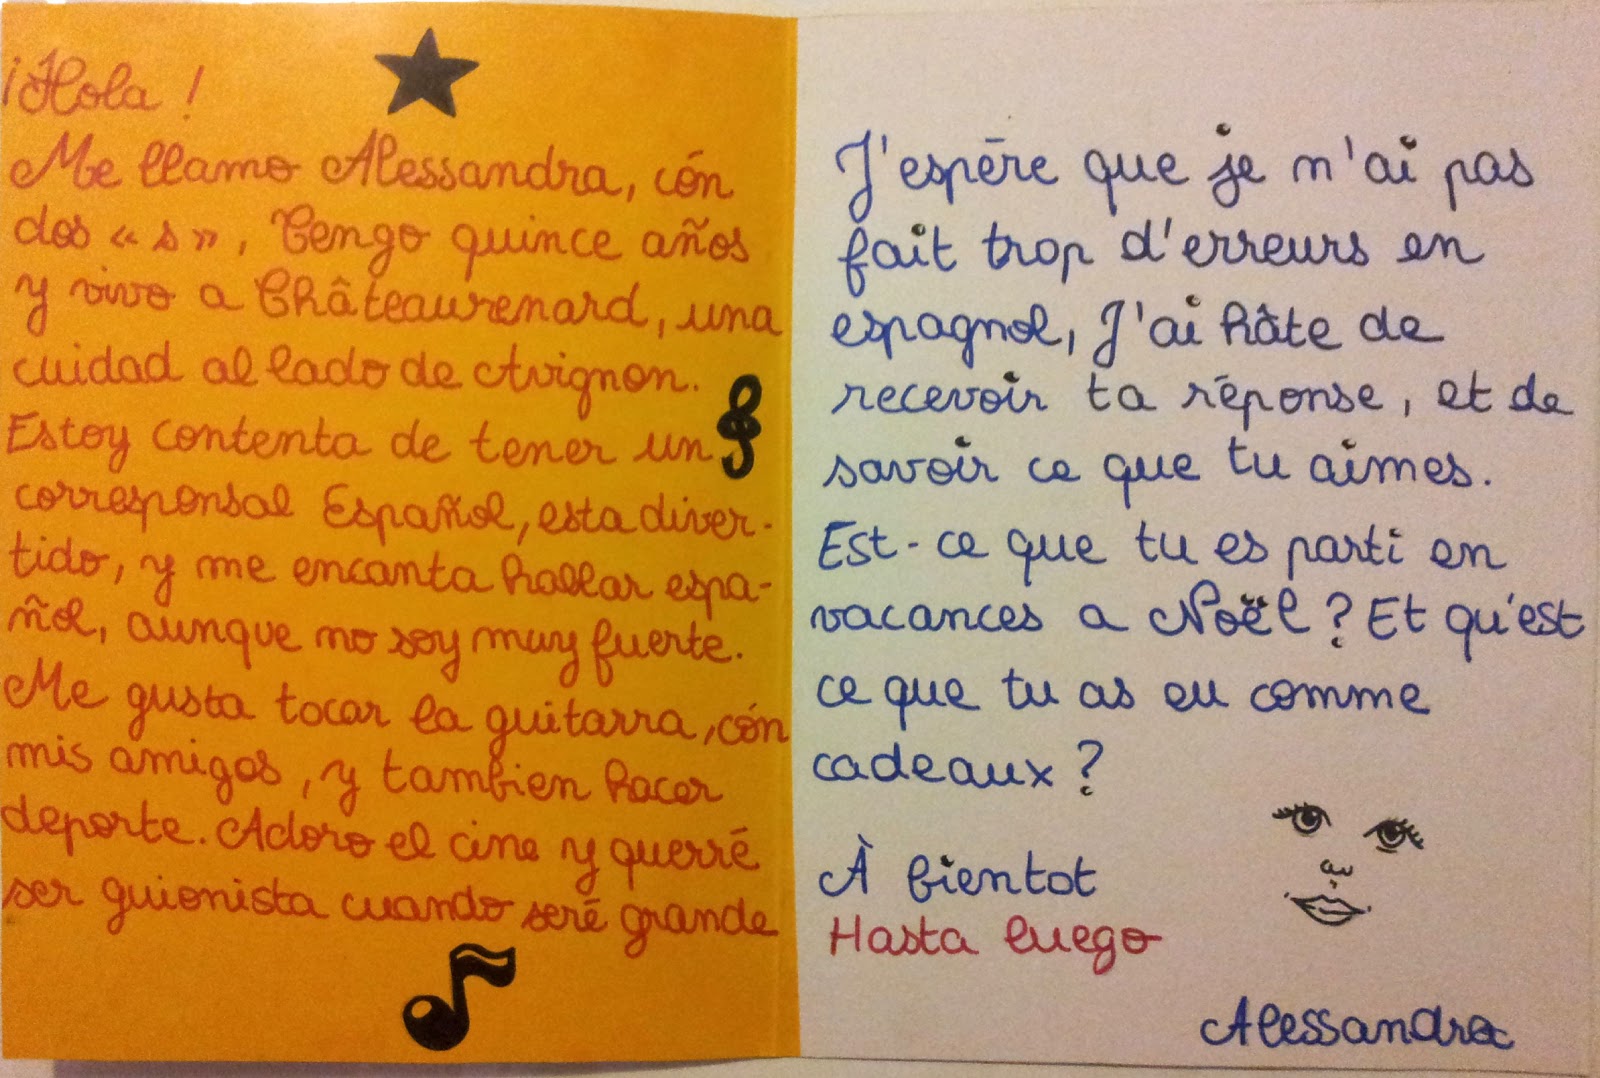 ¡Hola !
Me llamo Alessandra, cón
dos « s », Tengo quince años
y vivo a Châteaurenard, una
cuidad al lado de Avignon.
Estoy contenta de tener un
corresponsal Español, esta diver-
tido, y me encanta hablar espa-
ñol, aunque no soy muy fuerte.
Me gusta tocar la guitarra, cón
mis amigos, y tambien hacer
deporte. Adoro el cine y querré
ser guionista cuando seré grande
J'espère que je n'ai pas
fait trop d'erreurs en
espagnol, J'ai hâte de
recevoir ta réponse, et de
savoir ce que tu aimes.
Est-ce que tu es parti en
vacances a Noël ? Et qu'est
ce que tu as eu comme
cadeaux ?
À bientot
Hasta luego
Alessandra